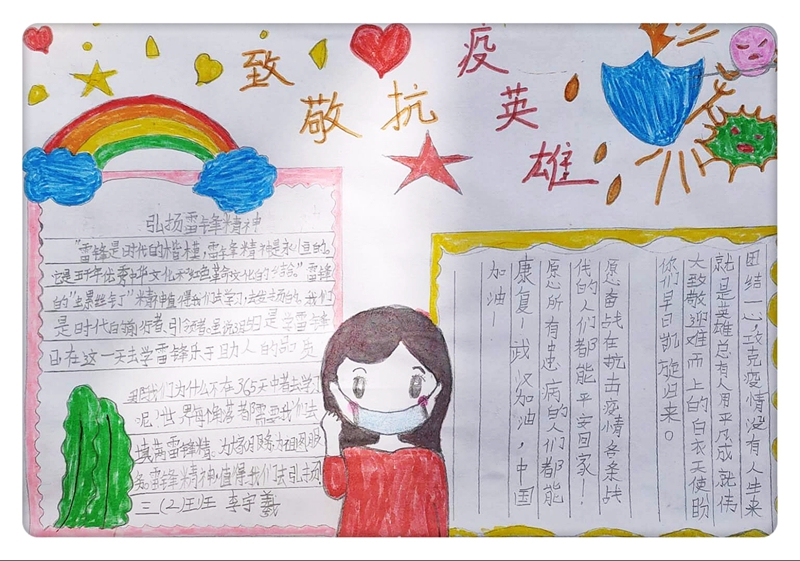 致敬抗疫英雄
弘扬雷锋精神
"雷锋是时代的楷模，雷锋精神是永恒的。
它是五千年优秀中华文化和红色革命文化的结合"雷锋
的"生累丝钉"精神值得我们去学习，去发扬的。我们
是时代的前行者、引领者。虽说3月5日是学雷锋
日在这一天去学雷锋乐于助人的品质
我们为什么不在365天中都去学习
呢？世界每个角落都需要我们去
雷锋精
雷锋精神，值得我们去引扬
三（2）班 李宇羲
团结一心，攻克疫情没有人生来
就是英雄总有人用平凡成就伟
大致敬迎难而上的白衣天使盼
你们早日凯旋归来。
愿奋战在抗击疫情各条战
线的人们都能平安回家！
愿所有患病的人们都能
康复！武汉加油，中国
加油！